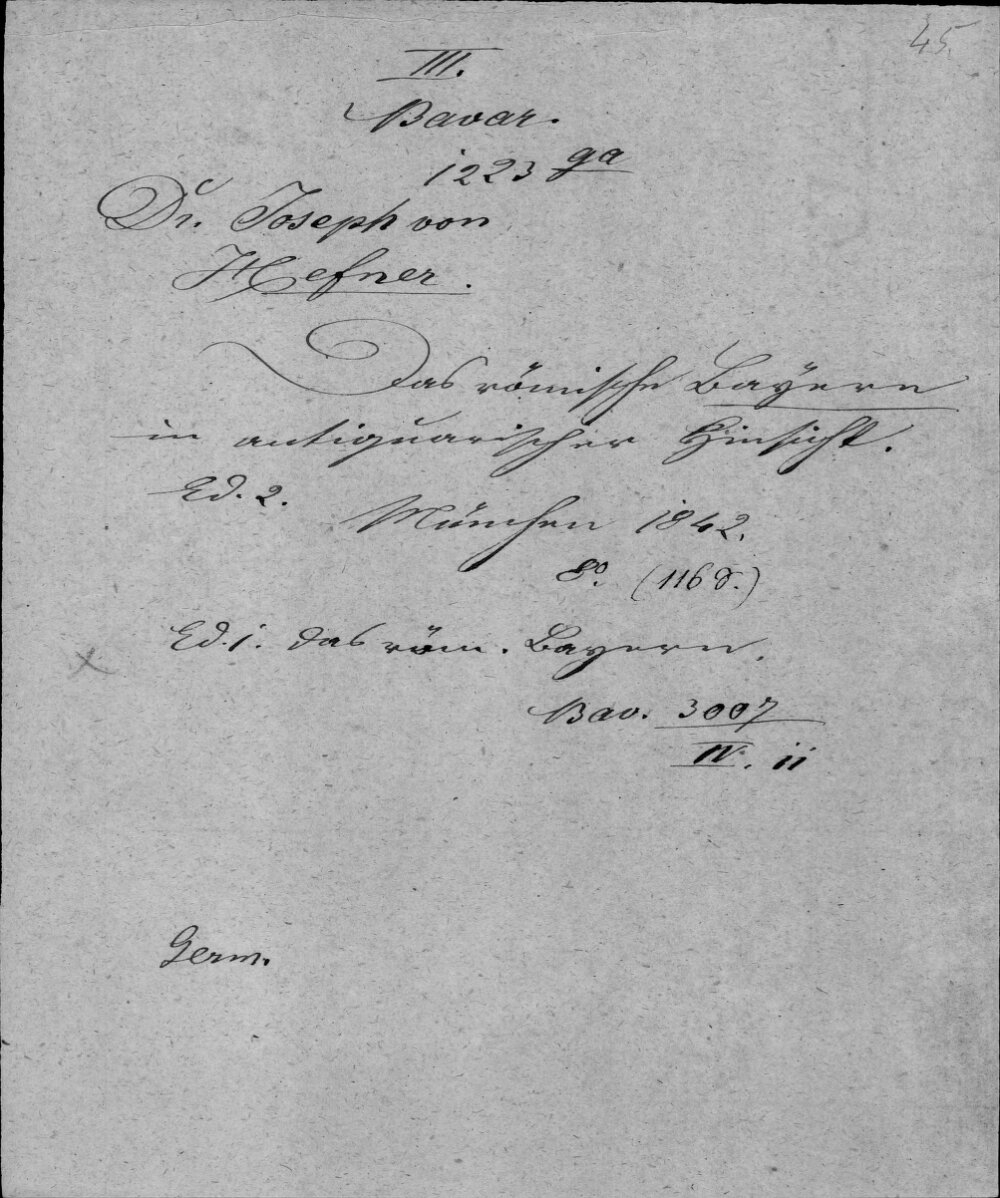 45.
III.
Bavar.
1223 ga
Dr. Joseph von
Hefner.
Das römische Bayern
in antiquarischer Hinsicht.
Ed. 2.
München 1842.
8º. (116 S.)
Ed. 1. Das röm. Bayern.
x
Bav. 3007
IV. 11
Germ.